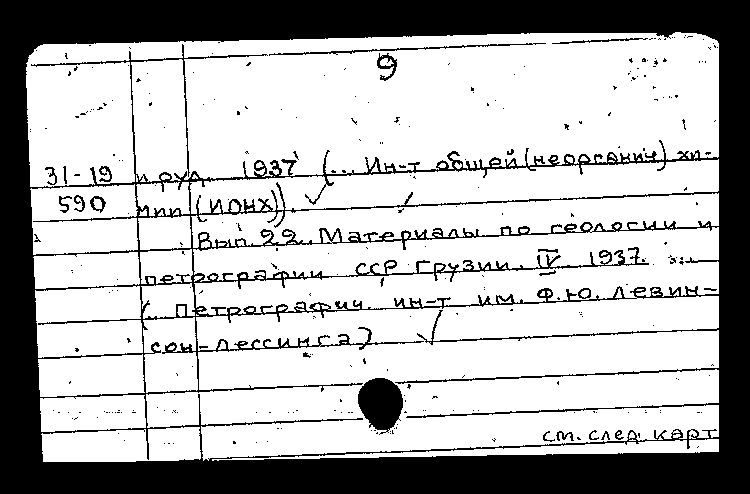 9
31-19 и руд. 1937 (... Ин-т общей (неорганич) хи-
590 мии (ИОНХ)).
Вып. 22. Материалы по геологии и
петрографии ССР Грузии. IV. 1937. ...
(.. Петрографич. ин-т им. Ф.Ю. Левин-
сон-Лессинга)
см. след. карт